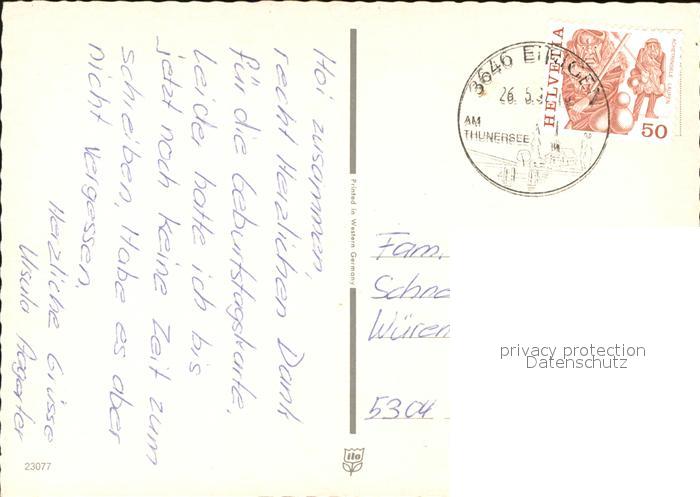 Hoi zusammen,
recht Herzlichen Dank
für die Geburtstagskarte.
Leider hatte ich bis
jetzt noch keine Zeit zum
schreiben. Habe es aber
nicht vergessen.
Herzliche Grüsse
Ursula
Printed in Western Germany
23077
ilo
3646 EINIGEN
26. 5.
AM
THUNERSEE
HELVETIA
50
Fam.
Schne
Würen
5304
privacy protection
Datenschutz